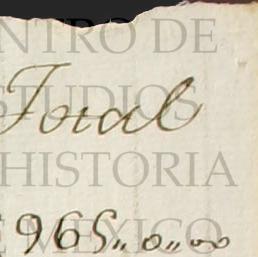 NTRO DE
STUDIOS
Total
HISTORIA
E MEXICO
965,,0,,00